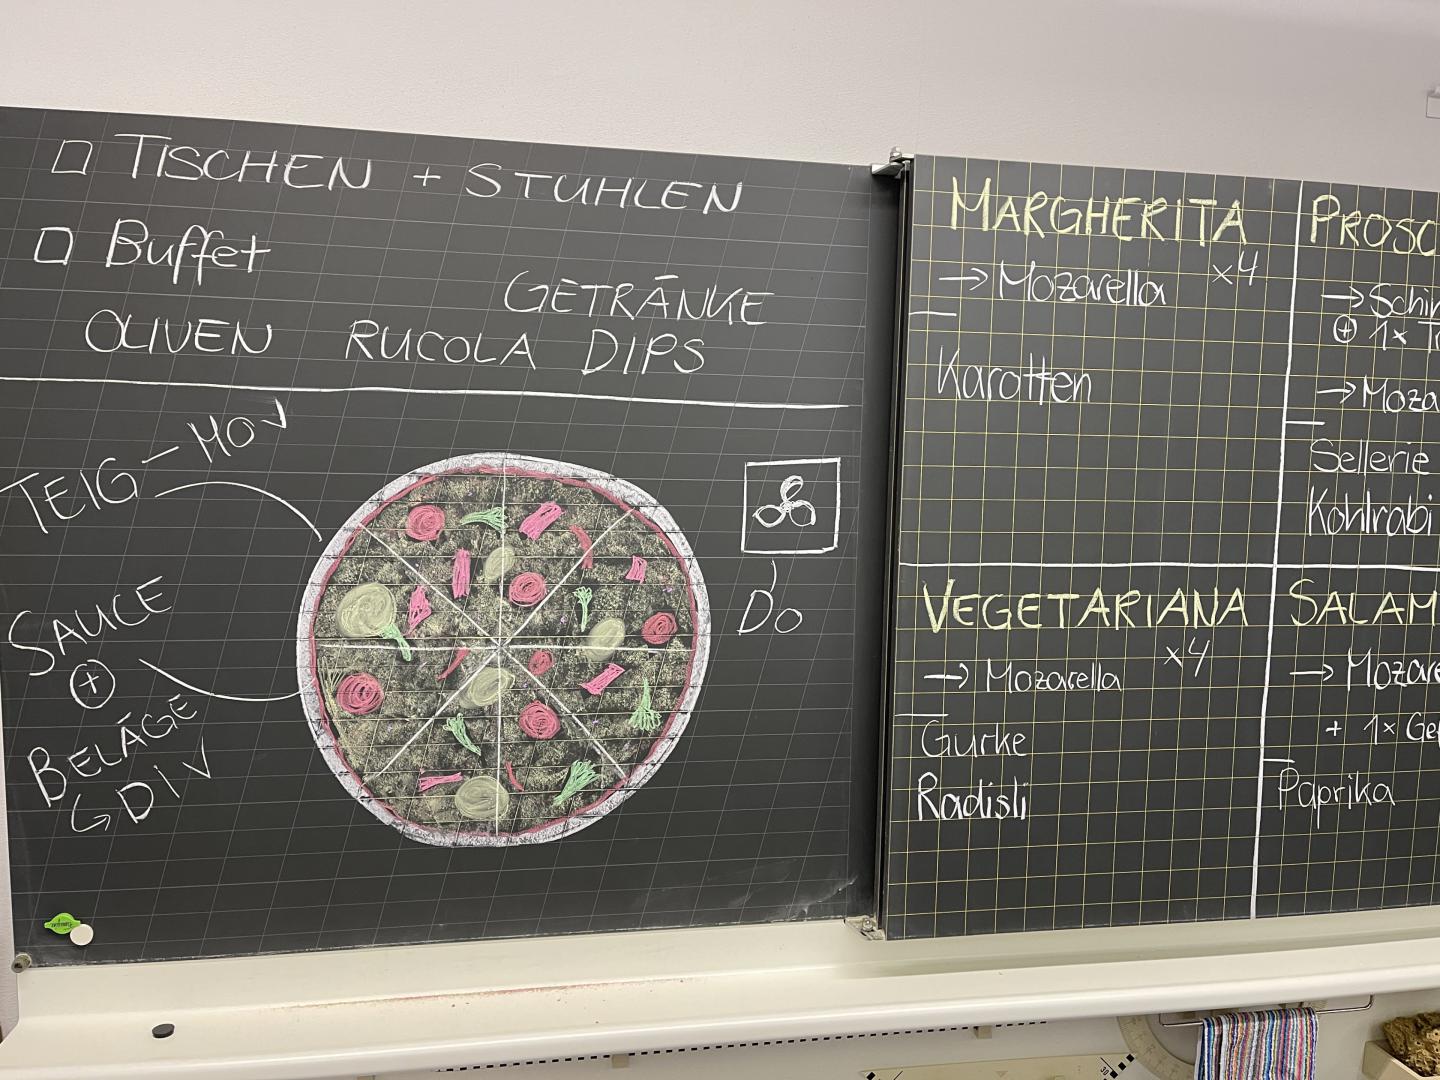 TISCHEN + STUHLEN
Buffet
GETRÄNKE
OLIVEN RUCOLA DIPS
TEIG – MO ✓
SAUCE
+
BELÄGE
↳ DI ✓
DO
MARGHERITA
→ Mozarella x4
Karotten
PROSC
→ Schin
⊕ 1x
→ Moza
Sellerie
Kohlrabi
VEGETARIANA
x4
→ Mozarella
Gurke
Radisli
SALAM
→ Mozare
+ 1x Ge
Paprika